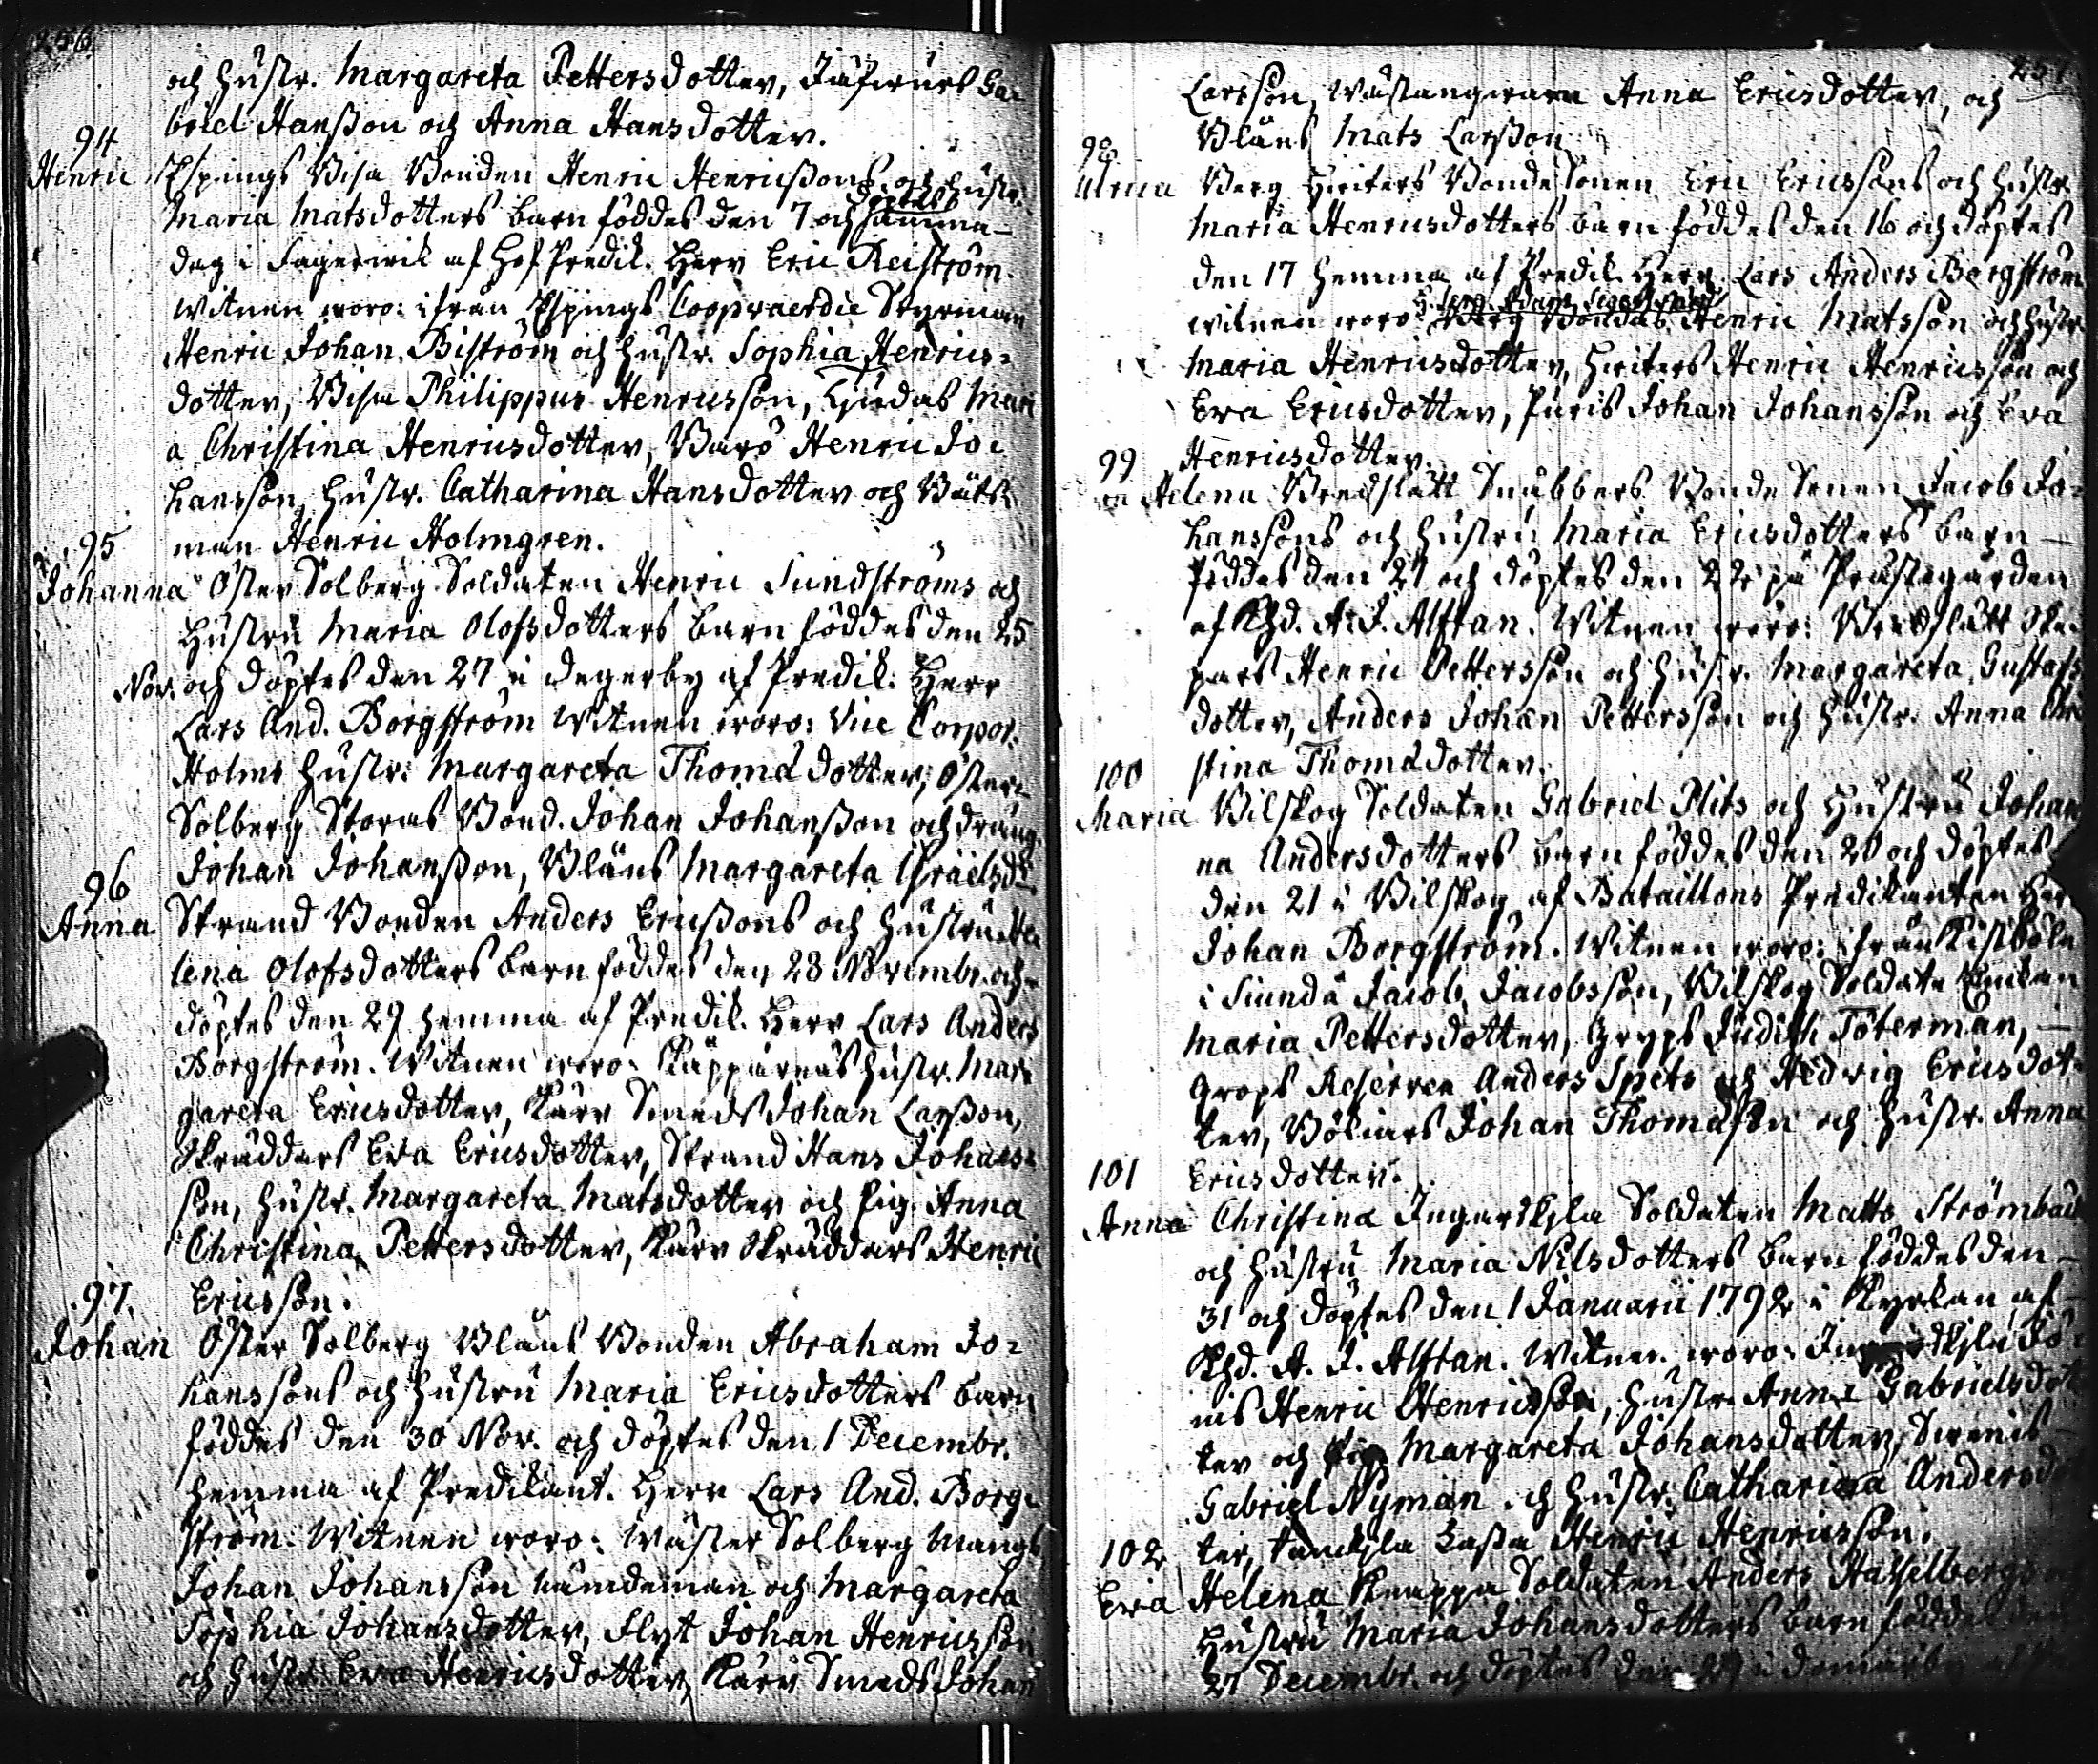 256
och hustr. Margareta Pettersdotter, Ga-
briel Hansson och Anna Hansdotter.
94
Henric Espings Visa Bonden Henric Henricssons och hustr.
döptes
Maria Matsdotters barn föddes den 7 och samma
dag i Fagervik af Hof Predik. Herr Eric Reiström.
Witnen woro: ifrån Espings Coopvaerdie Styrman
Henric Johan Biström och hustr. Sophia Henrics-
dotter, Visa Philippus Henricsson, Gjedas Mari
a Christina Henricsdotter, Barö Henric Jo-
hansson, hustr. Catharina Hansdotter och Båts-
man Henric Holmgren.
95
Johanna Öster Solberg Soldaten Henric Sundströms och
Hustru Maria Olofsdotters barn föddes den 25
Nov. och döptes den 27 i Degerby af Predik. Herr
Lars And. Borgström Witnen woro: Vice Corpor.
Holms hustr: Margareta Thomædotter, Öster
Solberg Storas Bond. Johan Johansson och dräng
Johan Johansson, Bläns Margareta Israelsd:
96
Anna Strand Bonden Anders Ericssons och hustru He
lena Olofsdotters barn föddes den 28 Novembr. och
döptes den 29 hemma af Predik. Herr Lars Anders
Borgström. Witnen woro: Käpparnäs hustr. Mar-
gareta Ericsdotter, Kärr Smeds Johan Larsson,
Skräddars Eva Ericsdotter, Strand Hans Johans-
son, hustr. Margareta Matsdotter och Pig. Anna
Christina Pettersdotter, Kärr Skräddars Henric
Ericsson.
97.
Johan Öster Solberg Bläns Bonden Abraham Jo-
hanssons och hustru Maria Ericsdotters barn
föddes den 30 Nov. och döptes den 1 Decembr.
hemma af Predikant. Herr Lars And. Borg-
ström. Witnen woro: Wäster Solberg Mangs
Johan Johansson Nämdeman och Margareta
Sophia Johansdotter, Flyt Johan Henricsson
och hustr. Eva Henricsdotter, Kärr Smeds Johan
257
Larsson, Wästanqvarn Anna Ericsdotter, och
Bläns Mats Larsson
98
Ulrica Berg Hviters Bonde Sonen Eric Ericssons och hustr.
Maria Henricsdotters barn föddes den 16 och döptes
den 17 hemma af Predik. Herr Lars Anders Borgström
witnen woro: Berg Bondas Henric Matsson och hustr.
Maria Henricsdotter, Hviters Henric Henricsson och
Eva Ericsdotter, Puris Johan Johansson och Eva
Henricsdotter.
99
Helena Bredslätt Snubbers Bonde Sonen Jacob Jo-
hanssons och hustru Maria Ericsdotters barn
föddes den 21 och döptes den 22 på Prästegården
af Khd. A. J. Alftan. Witnen woro: Bredslätt Ske-
pars Henric Pettersson och hustr. Margareta Gustafs
dotter, Anders Johan Pettersson och hustr. Anna Chri
stina Thomædotter.
100
Maria Bilskog Soldaten Gabriel Plits och Hustru Johan
na Andersdotters barn föddes den 20 och döptes
den 21 i Bilskog af Bataillons Predikanten Her
Johan Borgström. Witnen woro: ifrån Kistböle
i Siundå Jacob Jacobsson, Bilskog Soldate Enkan
Maria Pettersdotter, Grops Judith Töterman,
Grops Reserven Anders Spets och Hedvig Ericsdot-
ter, Bölsars Johan Thomasson och hustr. Anna
Ericsdotter.
101
Anna Christina Ingarskjla Soldaten Matts Strömbäck
och hustru Maria Nilsdotters barn föddes den
31 och döptes den 1 Januarii 1792 i Kyrkan af
Khd. A. J. Alftan. Witnen woro: Ingarskjla Jö-
nis Henric Henricsson, hustr. Anna Gabrielsdot
ter och Pig. Margareta Johansdotter, Svenis
Gabriel Nyman och hustr. Catharina Andersdo
ter, Lasse Henric Henricsson.
102
Eva Helena Knappa Soldaten Anders Hasselbergs
Hustru Maria Johansdotters barn föddes den
27 Decembr. och döptes den 29 i